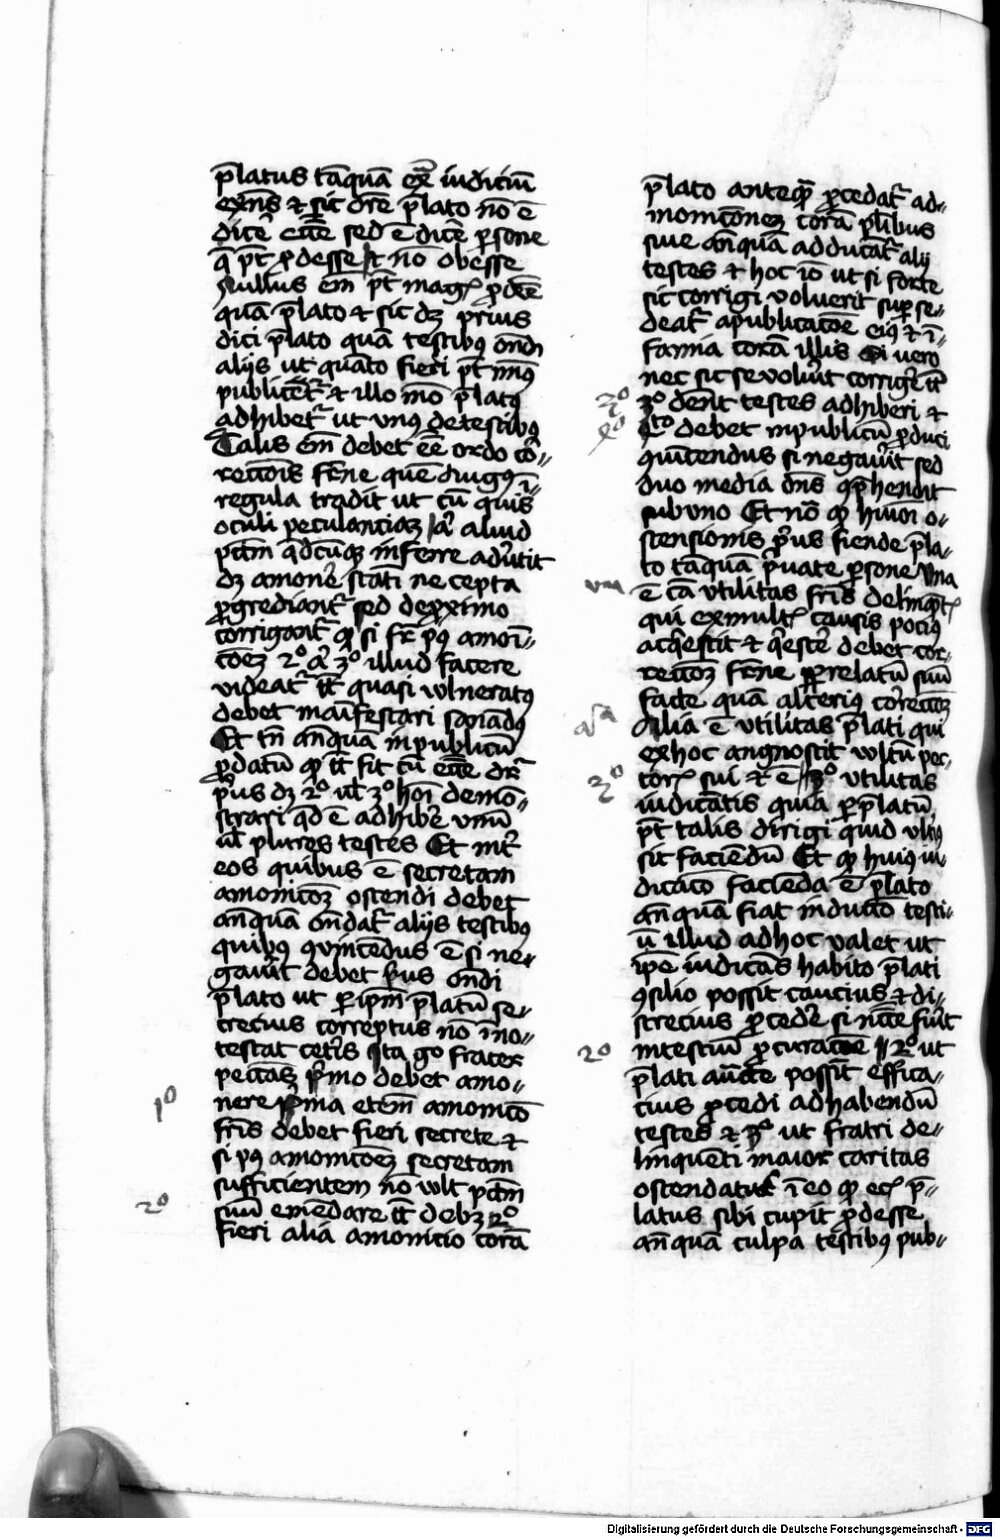 p̄latus tāquā ex̄ iudiciū
exn̄s ⁊ sic dr̄e p̄lato nō ē
dicē eccl̄e sed ē dicē ꝑsone
q̄ pt̄ ꝓdesse ⁊ nō obesse
Nullus em̄ pt̄ magꝭ ꝓdēe
quā p̄lato ⁊ sic dꝫ prius
dici p̄lato quā testibꝰ ondi
alijs ut quāto fieri pt̄ minꝰ
publicet̄ ⁊ illo mō p̄latꝰ
adhibet̄ ut vnꝰ de testibꝰ
Talis em̄ debet eē ordo cor„
recciōis fr̄ne quē Augꝰ ī„
regula tradit ut cū quis
oculi petulanciaꝫ aͥ aliud
pctm̄ qdcūqꝫ inferre aduͥtit
dꝫ amonē statī ne cepta
ꝓgrediant̄ sed de ꝓximo
corrigant̄ qͥ si fr̄ pꝰ amoi„
cōeꝫ 2º aͥ 3º illud facere
videat̄ tc̄ quasi vulneratꝰ
debet manifestari sanādꝰ
Et tn̄ an̄quā in publicū
ꝓdatū qͥ tc̄ fit cū eccl̄e dr̄
pͥus dꝫ 2º ul̄ 3º hōi demō„
strari qd ē adhibē vnū
ul̄ plures testes Et int̄
eos quibus ē secretam
amonicōꝫ ostendi debet
an̄quā ondat̄ alijs testibꝰ
quibꝰ ꝯuincēdus ē si ne„
gauͥt debet pͥus ondi
p̄lato ut ꝑ ip̄m p̄latū se„
crecius correptus nō ino„
testat cetīs Ista go frater
peccās pͥmo debet amo„
1º
nere pͥma etem̄ amonicō
fr̄is debet fieri secrete ⁊
si pꝰ amonicōeꝫ secretam
sufficientem nō vult pctm̄
2º
suū emēdare tc̄ debꝫ 2º
fieri alia amonicio corā
p̄lato anteqͣ̄ ꝓcedat̄ ad„
monicōneꝫ corā pl̄ibus
siue an̄quā adducāt̄ alij
testes ⁊ hoc iō ut si forte
sic corrigi voluerit suꝑse„
deat̄ a publicacōe eiꝰ ⁊ ī„
famia corā illis Si vero
nec sic se voluīt corrigē tc̄
3º
3º debt̄ testes adhiberi ⁊
4º
4to debet in publicū ꝓduci
ꝯuincendus si negauīt sed
duo media dn̄s ꝯp̄hendit
sub vno Et nō qͥ huiōi o„
stensionis pͥus fiende p̄la„
to tāquā pͥuate ꝑsone vna
vna
ē cā vtilitas fr̄is delinqͣt̄ꝭ
qui ex multꝭ causis pociꝰ
acqͥescit ⁊ qͥescē debet cor„
recciōꝫ fr̄ne ꝑ p̄latū suū
facte quā alteriꝰ correcciōꝫ
alia
Alia ē vtilitas p̄lati qui
ex hoc angnoscit vultū pec„
3º
corꝭ sui ⁊ ē 3º vtilitas
iudicātis quia ꝑ p̄latū
pt̄ talis dirigi quid vltͥꝰ
sit faciēdū Et qͥ huiꝰ iu„
dicacō faciēda ē p̄lato
an̄quā fiat inducctō testi„
ū illud ad hoc valet ut
ip̄e iudicās habito p̄lati
ꝯsilio possit caucius ⁊ di„
screcius ꝓcedē si ncc̄e fuīt
2º
in testiū ꝓcuracōe 2º ut
p̄lati auctē possit effica„
cius ꝓcedi ad habendū
testes ⁊ 3º ut fratri de„
linquēti maior caritas
ostendatur ī eo qͥ eciꝭ p̄„
latus sibi cupit ꝓdesse
an̄quā culpa testibꝰ pub„
Digitalisierung gefördert durch die Deutsche Forschungsgemeinschaft - DFG